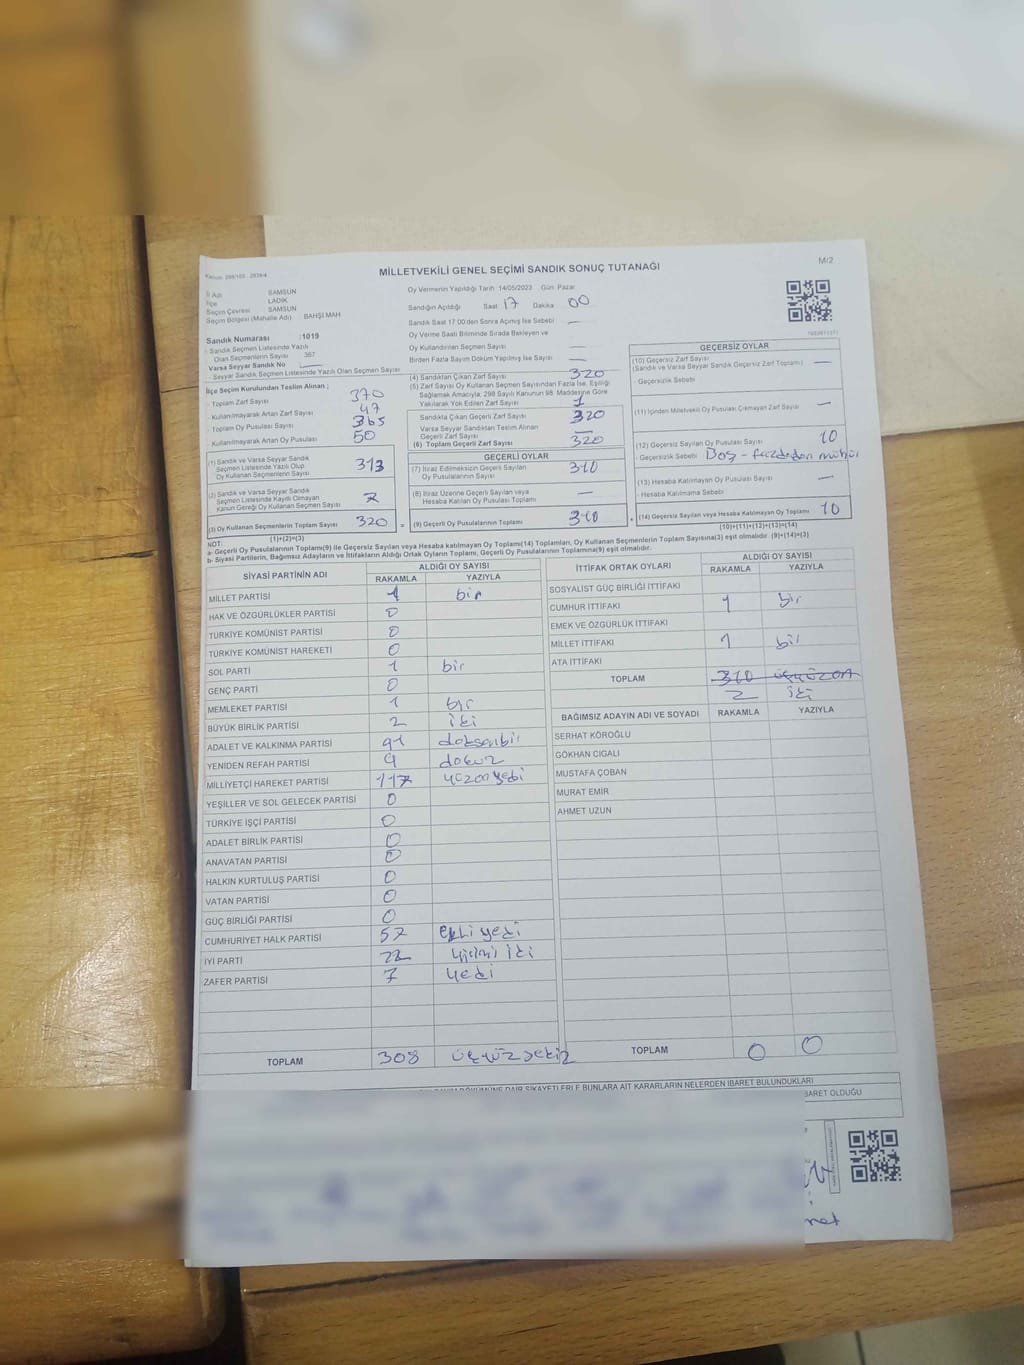 Kanun: 298/105 - 2839/4
MİLLETVEKİLİ GENEL SEÇİMİ SANDIK SONUÇ TUTANAĞI
M/2
İl Adı SAMSUN
İlçe LADİK
Seçim Çevresi SAMSUN
Seçim Bölgesi (Mahalle Adı) BAHŞİ MAH
Sandık Numarası :1019
Sandık Seçmen Listesinde Yazılı
Olan Seçmenlerin Sayısı 367
Varsa Seyyar Sandık No —
Seyyar Sandık Seçmen Listesinde Yazılı Olan Seçmen Sayısı
İlçe Seçim Kurulundan Teslim Alınan ;
Toplam Zarf Sayısı 370
Kullanılmayarak Artan Zarf Sayısı 47
Toplam Oy Pusulası Sayısı 365
Kullanılmayarak Artan Oy Pusulası 50
(1) Sandık ve Varsa Seyyar Sandık
Seçmen Listesinde Yazılı Olup
Oy Kullanan Seçmenlerin Sayısı 313
(2) Sandık ve Varsa Seyyar Sandık
Seçmen Listesinde Kayıtlı Olmayan
Kanun Gereği Oy Kullanan Seçmen Sayısı 7
(3) Oy Kullanan Seçmenlerin Toplam Sayısı 320 =
(1)+(2)=(3)
Oy Vermenin Yapıldığı Tarih :14/05/2023 Gün: Pazar
Sandığın Açıldığı Saat: 17 Dakika 00
Sandık Saat 17:00'den Sonra Açılmış İse Sebebi —
Oy Verme Saati Bitiminde Sırada Bekleyen ve
Oy Kullandırılan Seçmen Sayısı —
Birden Fazla Sayım Döküm Yapılmış İse Sayısı —
(4) Sandıktan Çıkan Zarf Sayısı 320
(5) Zarf Sayısı Oy Kullanan Seçmen Sayısından Fazla İse, Eşitliği
Sağlamak Amacıyla; 298 Sayılı Kanunun 98. Maddesine Göre
Yakılarak Yok Edilen Zarf Sayısı
Sandıkta Çıkan Geçerli Zarf Sayısı 320
Varsa Seyyar Sandıktan Teslim Alınan
Geçerli Zarf Sayısı —
(6) Toplam Geçerli Zarf Sayısı 320
GEÇERLİ OYLAR
(7) İtiraz Edilmeksizin Geçerli Sayılan
Oy Pusulalarının Sayısı 310
(8) İtiraz Üzerine Geçerli Sayılan veya
Hesaba Katılan Oy Pusulası Toplamı —
(9) Geçerli Oy Pusulalarının Toplamı 310 +
GEÇERSİZ OYLAR
(10) Geçersiz Zarf Sayısı
(Sandık ve Varsa Seyyar Sandık Geçersiz Zarf Toplamı) —
- Geçersizlik Sebebi
(11) İçinden Milletvekili Oy Pusulası Çıkmayan Zarf Sayısı —
(12) Geçersiz Sayılan Oy Pusulası Sayısı 10
- Geçersizlik Sebebi Boş - fazladan mühür
(13) Hesaba Katılmayan Oy Pusulası Sayısı —
- Hesaba Katılmama Sebebi
(14) Geçersiz Sayılan veya Hesaba Katılmayan Oy Toplamı 10
(10)+(11)+(12)+(13)=(14)
NOT:
a- Geçerli Oy Pusulalarının Toplamı(9) ile Geçersiz Sayılan veya Hesaba katılmayan Oy Toplamı(14) Toplamları, Oy Kullanan Seçmenlerin Toplam Sayısına(3) eşit olmalıdır. (9)+(14)=(3)
b- Siyasi Partilerin, Bağımsız Adayların ve İttifakların Aldığı Ortak Oyların Toplamı, Geçerli Oy Pusulalarının Toplamına(9) eşit olmalıdır.
SİYASİ PARTİNİN ADI ALDIĞI OY SAYISI
RAKAMLA YAZIYLA
MİLLET PARTİSİ 1 bir
HAK VE ÖZGÜRLÜKLER PARTİSİ 0
TÜRKİYE KOMÜNİST PARTİSİ 0
TÜRKİYE KOMÜNİST HAREKETİ 0
SOL PARTİ 1 bir
GENÇ PARTİ 0
MEMLEKET PARTİSİ 1 bir
BÜYÜK BİRLİK PARTİSİ 2 iki
ADALET VE KALKINMA PARTİSİ 91 doksanbir
YENİDEN REFAH PARTİSİ 9 dokuz
MİLLİYETÇİ HAREKET PARTİSİ 117 yüzonyedi
YEŞİLLER VE SOL GELECEK PARTİSİ 0
TÜRKİYE İŞÇİ PARTİSİ 0
ADALET BİRLİK PARTİSİ 0
ANAVATAN PARTİSİ 0
HALKIN KURTULUŞ PARTİSİ 0
VATAN PARTİSİ 0
GÜÇ BİRLİĞİ PARTİSİ 0
CUMHURİYET HALK PARTİSİ 57 elli yedi
İYİ PARTİ 22 yirmi iki
ZAFER PARTİSİ 7 yedi
TOPLAM 308 üçyüz sekiz
İTTİFAK ORTAK OYLARI ALDIĞI OY SAYISI
RAKAMLA YAZIYLA
SOSYALİST GÜÇ BİRLİĞİ İTTİFAKI
CUMHUR İTTİFAKI 1 bir
EMEK VE ÖZGÜRLÜK İTTİFAKI
MİLLET İTTİFAKI 1 bir
ATA İTTİFAKI
TOPLAM 310 üçyüzon
2 iki
BAĞIMSIZ ADAYIN ADI VE SOYADI RAKAMLA YAZIYLA
SERHAT KÖROĞLU
GÖKHAN CIGALI
MUSTAFA ÇOBAN
MURAT EMİR
AHMET UZUN
TOPLAM 0 0
DÖKÜMÜNE DAİR ŞİKAYETLERLE BUNLARA AİT KARARLARIN NELERDEN İBARET BULUNDUKLARI
İBARET OLDUĞU